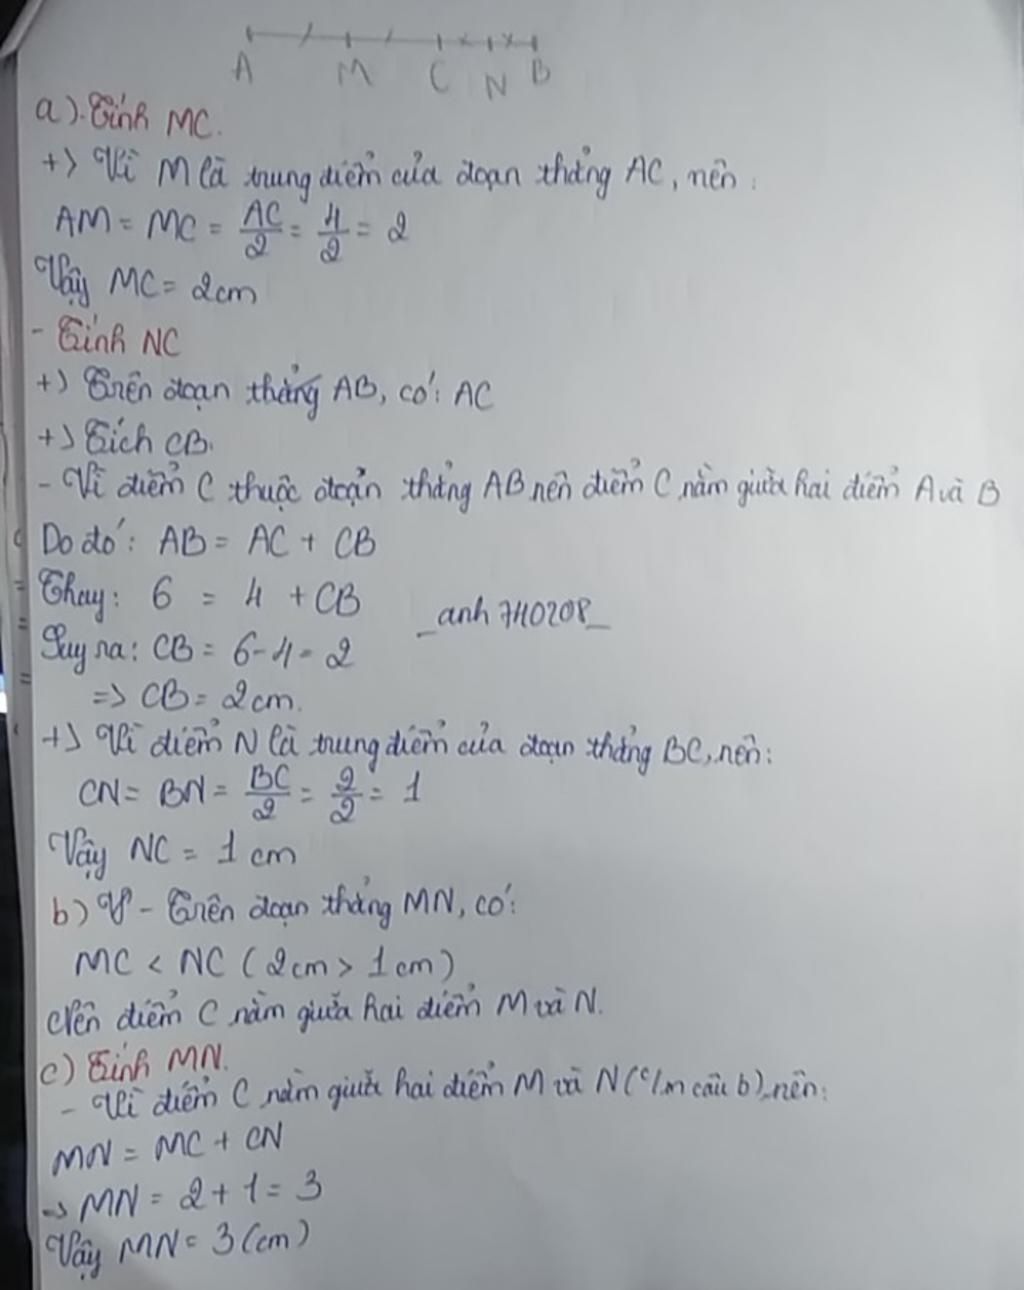 A M C N B
a). Tính MC.
+) Vì M là trung điểm của đoạn thẳng AC, nên:
AM = MC = AC/2 = 4/2 = 2
Vậy MC = 2cm
- Tính NC
+) Trên đoạn thẳng AB, có: AC
+) Tích CB.
- Vì điểm C thuộc đoạn thẳng AB nên điểm C nằm giữa hai điểm A và B
Do đó: AB = AC + CB
Thay: 6 = 4 + CB
_anh740208_
Suy ra: CB = 6-4 = 2
=> CB = 2cm.
+) Vì điểm N là trung điểm của đoạn thẳng BC, nên:
CN = BN = BC/2 = 2/2 = 1
Vậy NC = 1 cm
b) V - Trên đoạn thẳng MN, có:
MC < NC (2cm > 1cm)
Nên điểm C nằm giữa hai điểm M và N.
c) Tính MN.
- Vì điểm C nằm giữa hai điểm M và N (c/m câu b), nên:
MN = MC + CN
-> MN = 2 + 1 = 3
Vậy MN = 3 (cm)